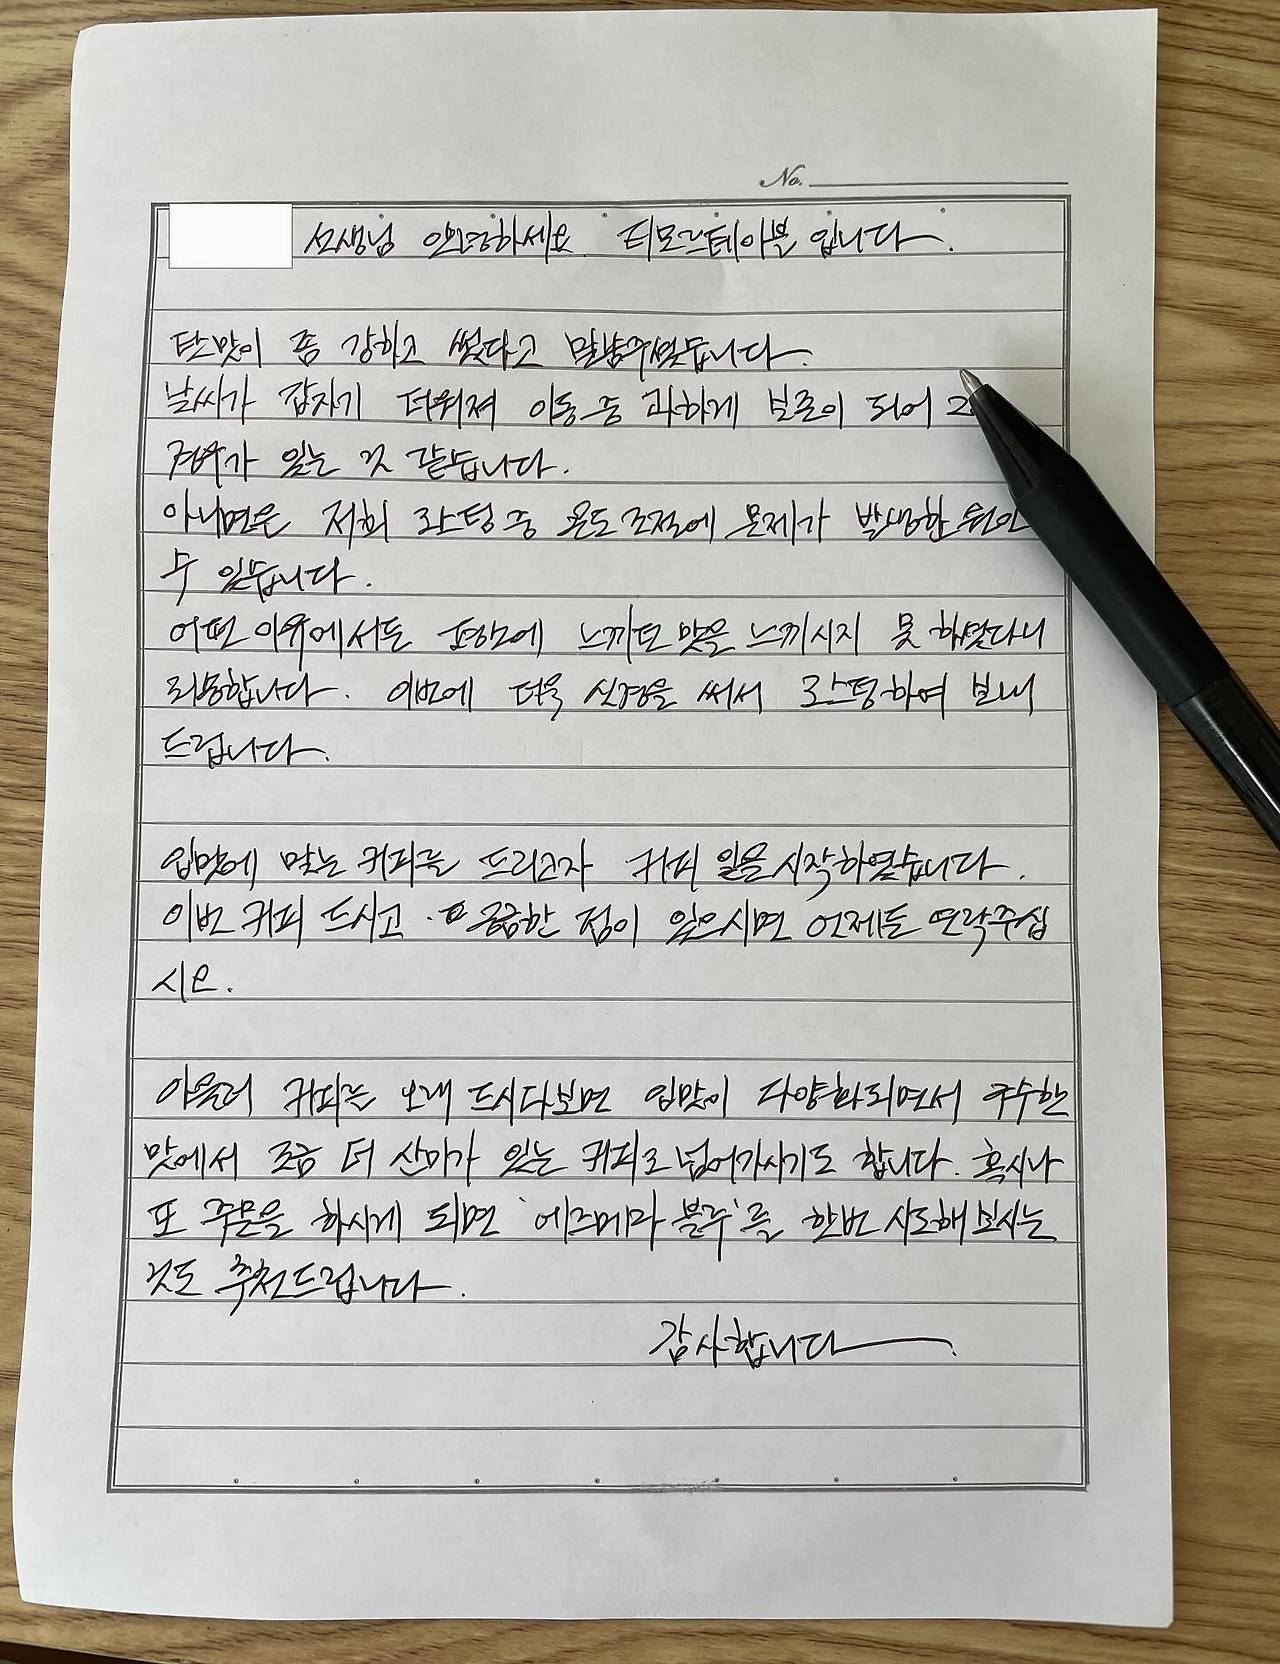 No.
선생님 안녕하세요. 티모르테이블 입니다.
탄맛이 좀 강하고 썼다고 말씀주셨습니다.
날씨가 갑자기 더워져 이동 중 과하게 보존이 되어
경우가 있는 것 같습니다.
아니면은 저희 로스팅 중 온도 조절에 문제가 발생한
수 있습니다.
어떤 이유에서든 평안에 느끼던 맛을 느끼시지 못 하셨다니
죄송합니다. 이번에 더욱 신경을 써서 로스팅하여 보내
드립니다.
입맛에 맞는 커피를 드리고자 커피 일을 시작하였습니다.
이번 커피 드시고 또 궁금한 점이 있으시면 언제든 연락주십
시오.
아울러 커피를 오래 드시다보면 입맛이 다양화되면서 구수한
맛에서 조금 더 산미가 있는 커피로 넘어가시기도 합니다. 혹시나
또 주문을 하시게 되면 '에즈메라 블루'를 한번 시도해보시는
것도 추천드립니다.
감사합니다.